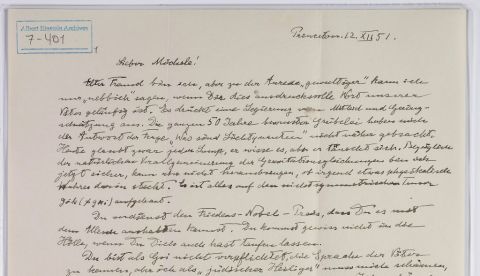 Albert Einstein Archives
7-401
Princeton. 12. XII 51.
Lieber
Alter Freund bin ich, aber zu der Anrede „gewaltiger" kann ich
nur „nebbich" sagen, wenn Dir dies ausdrucksvolle Wort unserer
Väter geläufig ist. Es drückt eine Legierung von Mitleid und Gering-
schätzung aus. Die ganzen 50 Jahre bewusster Grübelei haben mich
der Antwort der Frage „Was sind Lichtquanten" nicht näher gebracht.
Heute glaubt zwar jeder Lump, er wisse es, aber er täuscht sich. Bezüglich
der natürlichen Verallgemeinerung der Gravitationsgleichungen bin ich
jetzt sicher, kann aber nicht herausbringen, ob irgend etwas physikalisch
Wahres darin steckt. Es ist alles auf den nicht symmetrischen Tensor
gik (≠ gki) aufgebaut.
Du verdienst den Friedens-Nobel-Preis, dass Du es mit
dem aushalten kannst. Du kommst gewiss nicht in die
Hölle, wenn Du Dich auch hast taufen lassen.
Du bist als Goi nicht verpflichtet, die Sprache der Väter
zu kennen, aber ich als „jüdischer Heiliger" muss mich schämen,